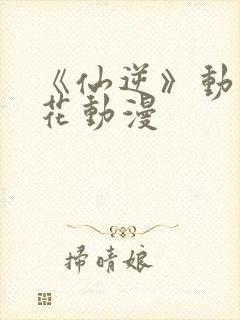 《仙逆》動
花動漫
掃晴娘